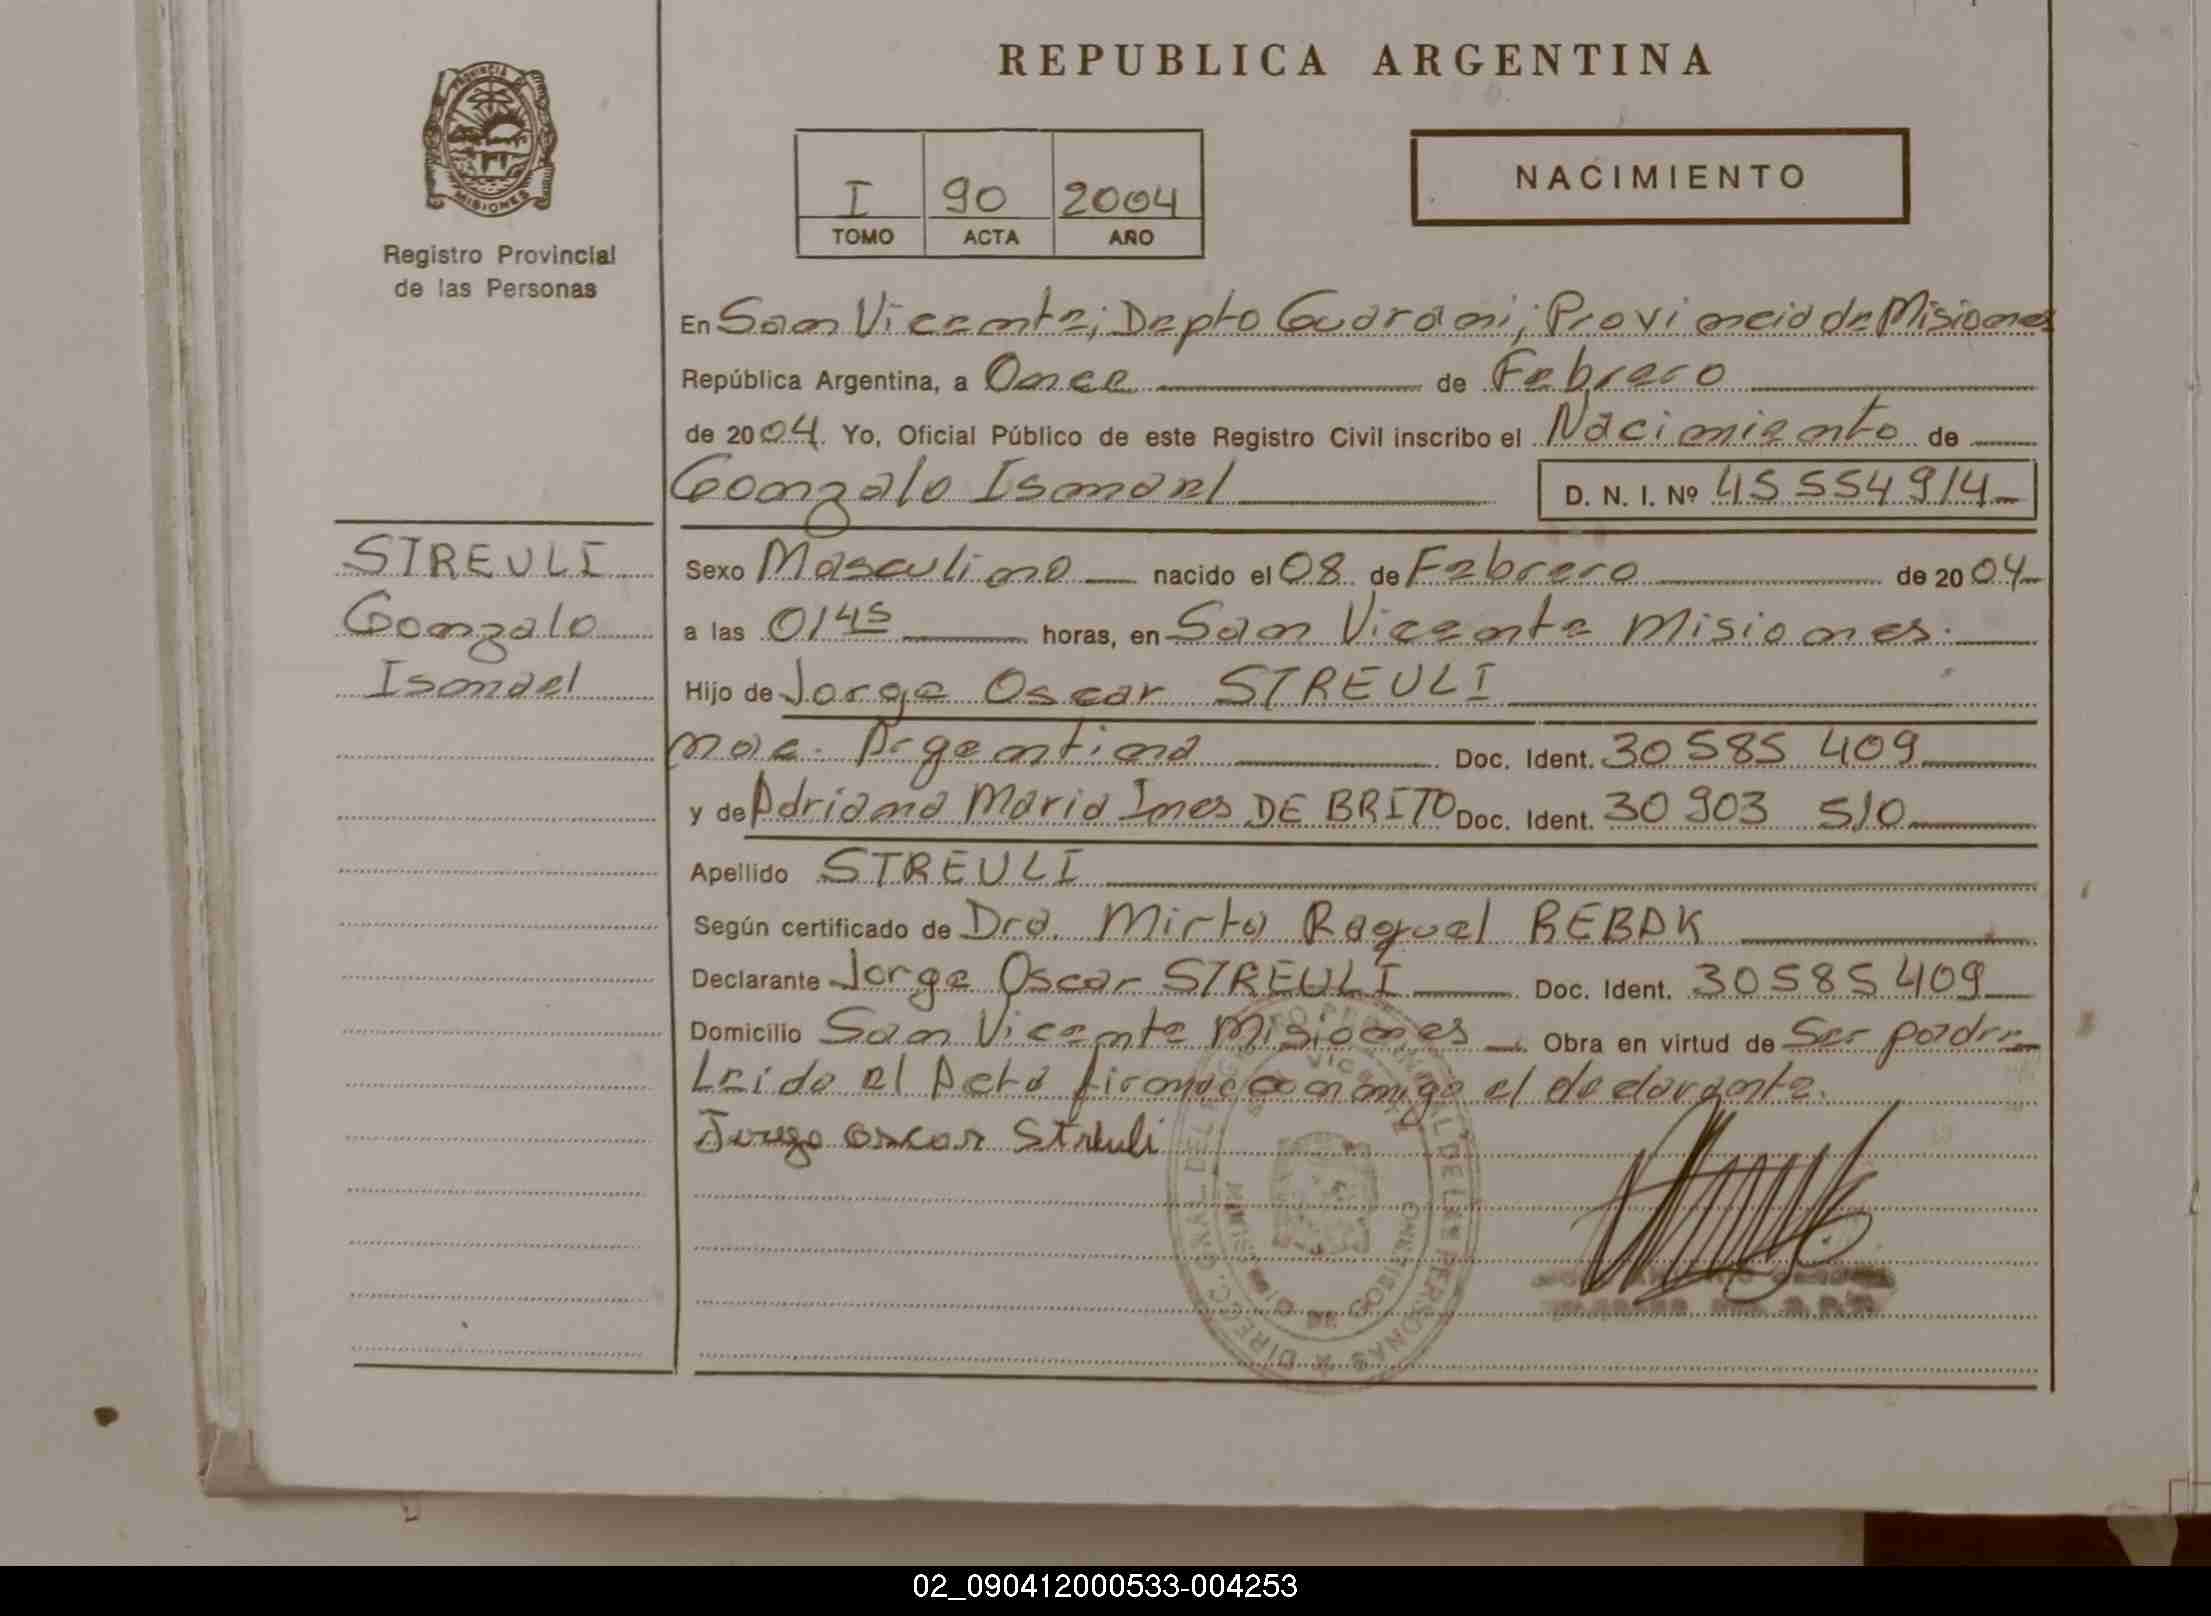 REPUBLICA ARGENTINA
PROVINCIA DE
MISIONES
Registro Provincial
de las Personas
I 90 2004
TOMO ACTA AÑO
NACIMIENTO
En San Vicente; Depto Guarani; Provincia de Misiones
República Argentina, a Once de Febrero
de 2004. Yo, Oficial Público de este Registro Civil inscribo el Nacimiento de
Gonzalo Ismael D. N. I. Nº 45 554 914
STREULI
Gonzalo
Ismael
Sexo Masculino nacido el 08 de Febrero de 2004
a las 0145 horas, en San Vicente Misiones.
Hijo de Jorge Oscar STREULI
nac. Argentina Doc. Ident. 30 585 409
y de Adriana Maria Ines DE BRITO Doc. Ident. 30 903 510
Apellido STREULI
Según certificado de Dra. Mirta Raquel REBAK
Declarante Jorge Oscar STREULI Doc. Ident. 30 585 409
Domicilio San Vicente Misiones Obra en virtud de Ser padre
Leida el Acta firma conmigo el declarante.
Jorge Oscar Streuli
02_090412000533-004253